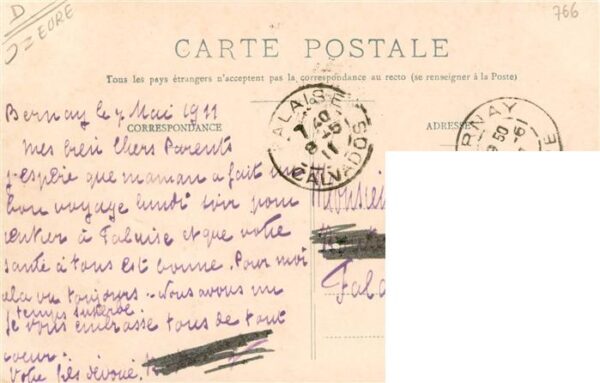 D
J=EURE
766
CARTE POSTALE
Tous les pays étrangers n'acceptent pas la correspondance au recto (se renseigner à la Poste)
Bernay le 7 Mai 1911
CORRESPONDANCE
ADRESSE
FALAISE
CALVADOS
RNAY
Mes bien Chers Parents
J'espère que maman a fait un
bon voyage lundi soir pour
rentrer à Falaise et que votre
santé à tous est bonne. Pour moi
cela va toujours. Nous avons un
temps superbe.
Je vous embrasse tous de tout
coeur.
Votre fils dévoué.
Monsieu
Fala